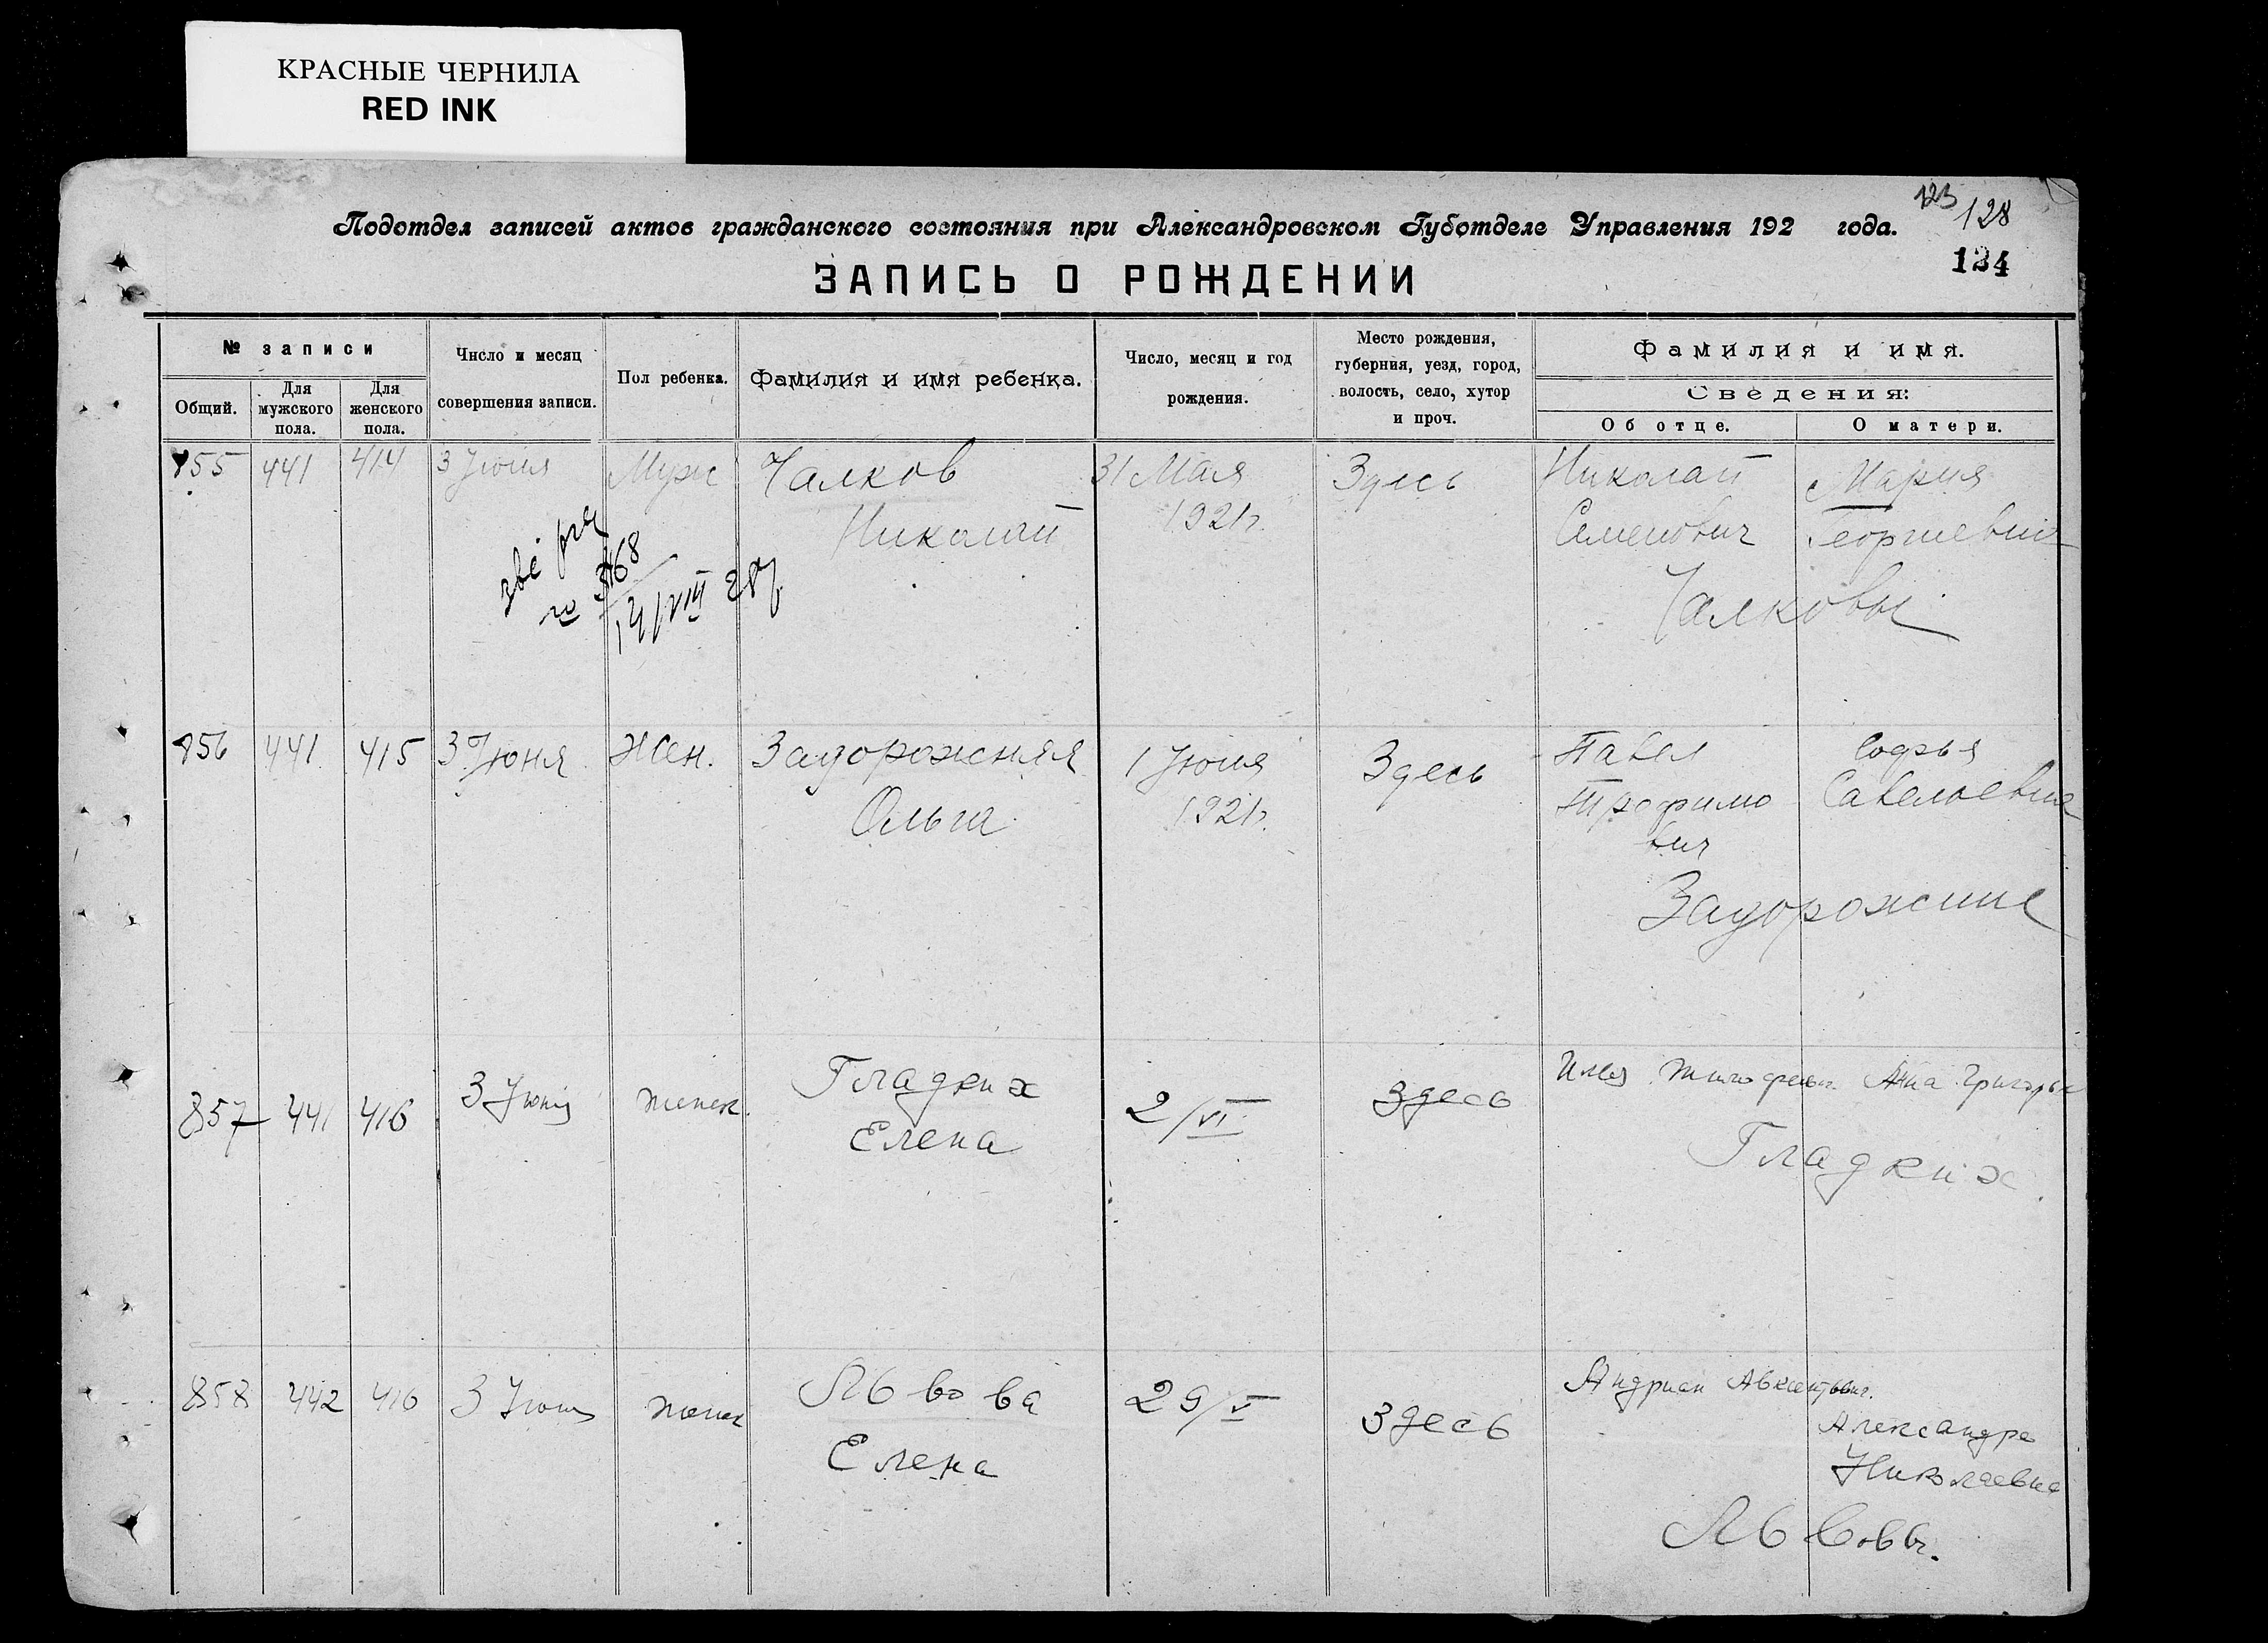 КРАСНЫЕ ЧЕРНИЛА
RED INK
123
128
Подотдел записей актов гражданского состояния при Александровском Губотделе Управления 192 года.
124
ЗАПИСЬ О РОЖДЕНИИ
№ записи
Общий.
Для мужского пола.
Для женского пола.
Число и месяц совершения записи.
Пол ребенка.
Фамилия и имя ребенка.
Число, месяц и год рождения.
Место рождения, губерния, уезд, город, волость, село, хутор и проч.
Фамилия и имя.
Сведения:
Об отце.
О матери.
855 441 414 3 Июня Муж Чалков 31 Мая Здесь Николай Мария
Николай 1921г. Семенович Георгиевна
Чалковы
№ 3168
14/VIII 28г
856 441 415 3 Июня Жен. Задорожняя 1 Июня Здесь Павел Софья
Ольга 1921г. Трофимо Савельевна
вич
Задорожние
857 441 416 3 Июня женск. Гладких 2/VI Здесь Анна Григорьев
Елена
Гладких.
858 442 416 3 Июня женск Львова 29/V Здесь Андриан Авксентьевич.
Елена Александра
Николаевна
Львовы.